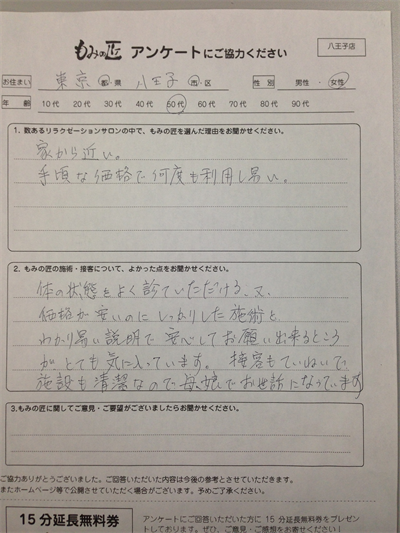 もみの匠 アンケートにご協力ください 八王子店
お住まい 東京 都・県 八王子 市・区 性別 男性・女性
年齢 10代 20代 30代 40代 50代 60代 70代 80代 90代
1. 数あるリラクゼーションサロンの中で、もみの匠を選んだ理由をお聞かせください。
家から近い。
手頃な価格で何度も利用し易い。
2. もみの匠の施術・接客について、よかった点をお聞かせください。
体の状態をよく診ていただける、又、
価格が安いのにしっかりした施術と
わかり易い説明で安心してお願い出来るところ
がとても気に入っています。接客もていねいで、
施設も清潔なので母娘でお世話になっています
3.もみの匠に関してご意見・ご要望がございましたらお聞かせください。
ご協力ありがとうございました。ご回答いただいた内容は今後の参考とさせていただきます。
またホームページ等で公開させていただく場合がございます。予めご了承ください。
15分延長無料券 アンケートにご回答いただいた方に15分延長無料券をプレゼン
トしております。ぜひ、ご意見・ご感想をお寄せください！